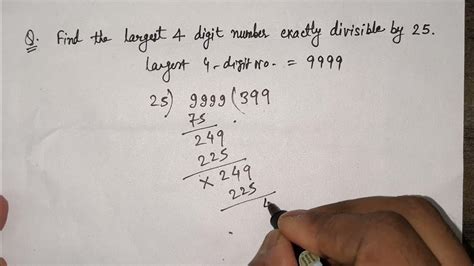 Q. Find the largest 4 digit number exactly divisible by 25.
Largest 4-digit no. = 9999
25) 9999 (399
75
249
225
x 249
225